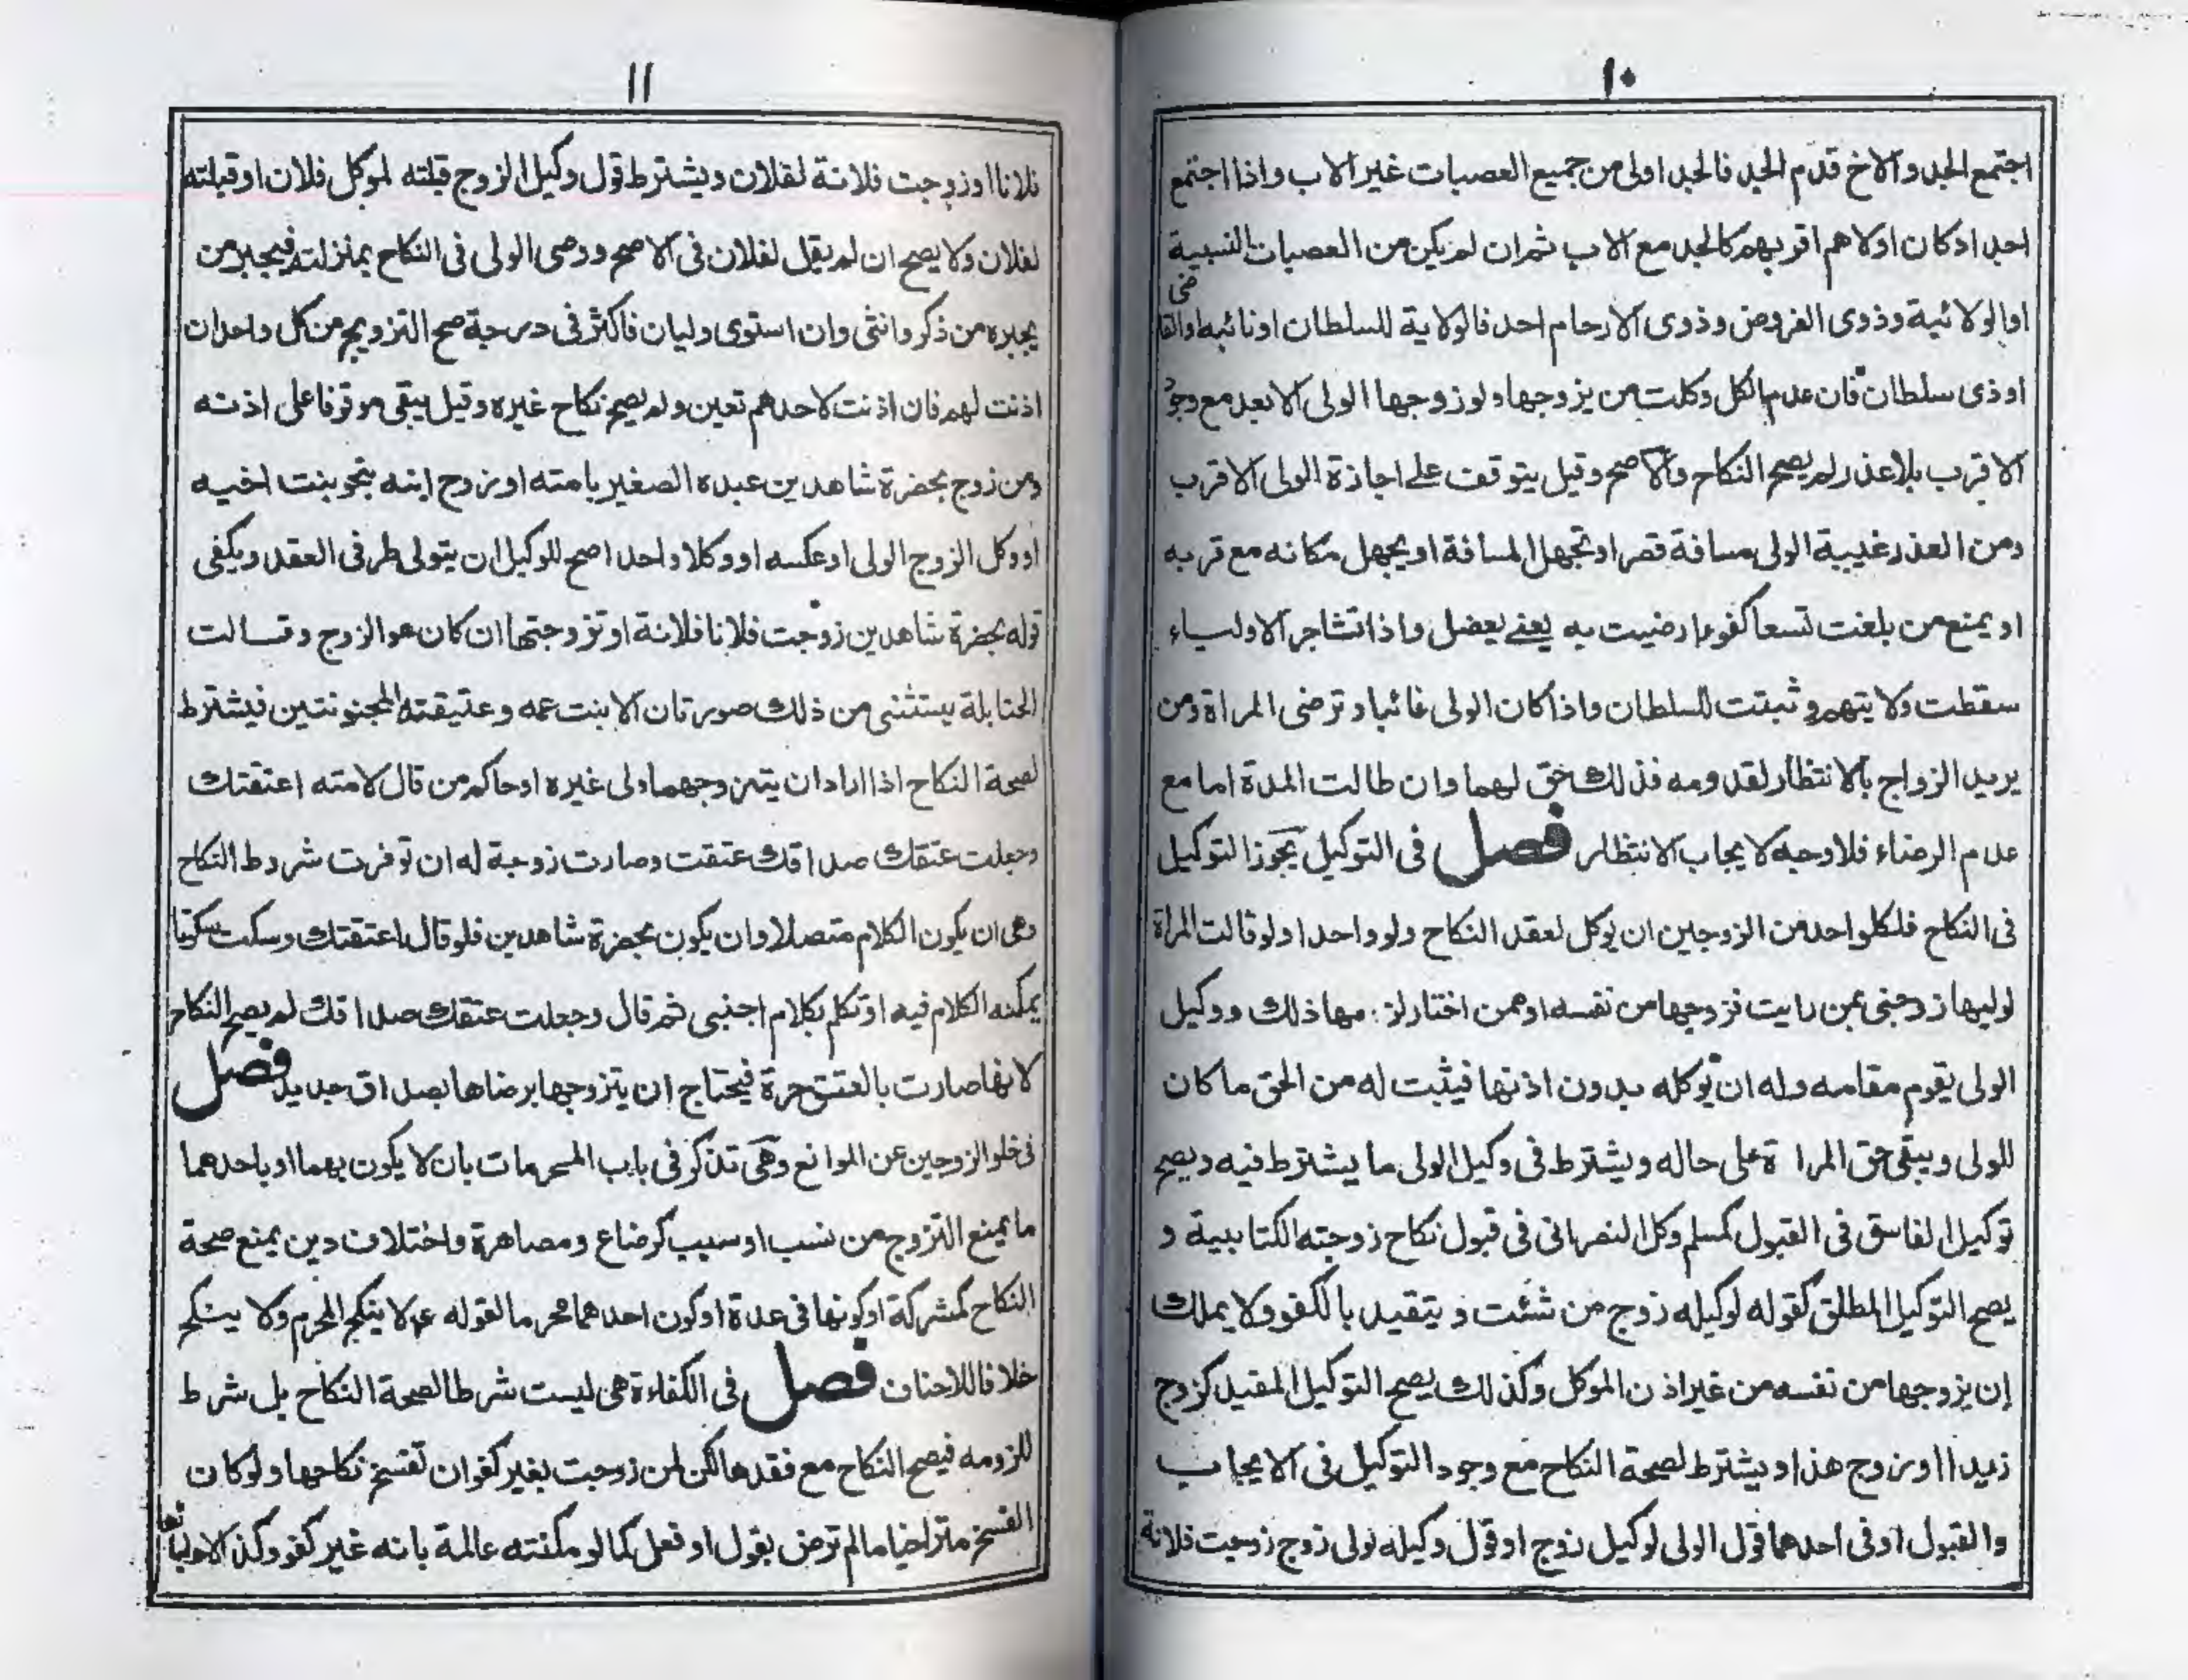 ١٠
اجتمع الجد والاخ قدم الجد فالجد اولى من جميع العصبات غير الاب واذا اجتمع
احد ادكان اولاهم اقربهم كالجد مع الاب ثم ان لم يكن من العصبات النسبية
اوالولائية وذوى الفروض وذوى الارحام احد فالولاية للسلطان اونائبه اوالقاضى
اوذى سلطان فان عدم الكل وكلت من يزوجها ولوزوجها الولى الابعد مع وجود
الاقرب بلاعذر لم يصح النكاح والاصح وقيل يتوقف على اجازة الولى الاقرب
ومن العذر غيبة الولى مسافة قصر او تجهل المسافة او يجهل مكانه مع قربه
او يمنع من بلغت تسعا كفوءا رضيت به يعنى يعضل واذا تشاجر الاولياء
سقطت ولايتهم وثبتت للسلطان واذا كان الولى غائبا وترضى المراة ومن
يريد الزواج بالانتظار لقدومه فذلك حق لهما وان طالت المدة اما مع
عدم الرضاء فلاوجه لايجاب الانتظار فصل فى التوكيل يجوز التوكيل
فى النكاح فلكلواحد من الزوجين ان يوكل لعقد النكاح ولو واحدا ولوقالت المراة
لوليها زوجنى ممن رايت فزوجها من نفسه اوممن اختار لزمها ذلك ووكيل
الولى يقوم مقامه وله ان يوكله بدون اذنها فيثبت له من الحق ما كان
للولى ويبقى حق المراة على حاله ويشترط فى وكيل الولى ما يشترط فيه ويصح
توكيل الفاسق فى القبول كمسلم وكل النصرانى فى قبول نكاح زوجته الكتابية و
يصح التوكيل المطلق كقوله لوكيله زوج من شئت ويتقيد بالكفو ولايملك
ان يزوجها من نفسه من غير اذن الموكل وكذلك يصح التوكيل المقيد كزوج
زيدا اوزوج هذا ويشترط لصحة النكاح مع وجود التوكيل فى الايجاب
والقبول اوفى احدهما قول الولى لوكيل زوج اوقول وكيله لولى زوج زوجت فلانة
١١
فلانا اوزوجت فلانة لفلان ويشترط قول وكيل الزوج قبلته لموكل فلان اوقبلته
لفلان ولا يصح ان لم يقل لفلان فى الاصح ووصى الولى فى النكاح بمنزلته فيجبر من
يجبره من ذكر وانثى وان استوى وليان فاكثر فى درجة صح التزويج من كل واحد ان
اذنت لهم فان اذنت لاحدهم تعين ولم يصح نكاح غيره وقيل يبقى موقوفا على اذنه
ومن زوج بحضرة شاهدين عبده الصغير بامته اوزوج ابنه بنحو بنت اخيه
اووكل الزوج الولى اوعكسه اووكلا واحدا صح للوكيل ان يتولى طرفى العقد ويكفى
قوله بحضرة شاهدين زوجت فلانا فلانة اوتزوجتها ان كان هو الزوج وقالت
الحنابلة يستثنى من ذلك صورتان الا بنت عمه وعتيقته المجنونتين فيشترط
لصحة النكاح اذا اراد ان يتزوجهما ولى غيره اوحاكم من قال لامته اعتقتك
وجعلت عتقك صداقك عتقت وصارت زوجة له ان توفرت شروط النكاح
وهى ان يكون الكلام متصلا وان يكون بحضرة شاهدين فلوقال اعتقتك وسكت سكوتا
يمكنه الكلام فيه اوتكلم بكلام اجنبى ثم قال وجعلت عتقك صداقك لم يصح النكاح
لانها صارت بالعتق حرة فيحتاج ان يتزوجها برضاها بصداق جديد فصل
فى خلو الزوجين عن الموانع وهى تذكر فى باب المحرمات بان لا يكون بهما اوباحدهما
ما يمنع التزوج من نسب اوسبب كرضاع ومصاهرة واختلاف دين يمنع صحة
النكاح كمشركة اوكونها فى عدة اوكون احدهما محرما لقوله ع لا ينكح المحرم ولا ينكح
خلافا للاحناف فصل فى الكفاءة هى ليست شرطا لصحة النكاح بل شرط
للزومه فيصح النكاح مع فقدها لكن لمن زوجت بغير كفو ان تفسخ نكاحها ولوكان
الفسخ متراخيا مالم ترض بقول اوفعل كما لو مكنته عالمة بانه غير كفو وكذا لاوليائها